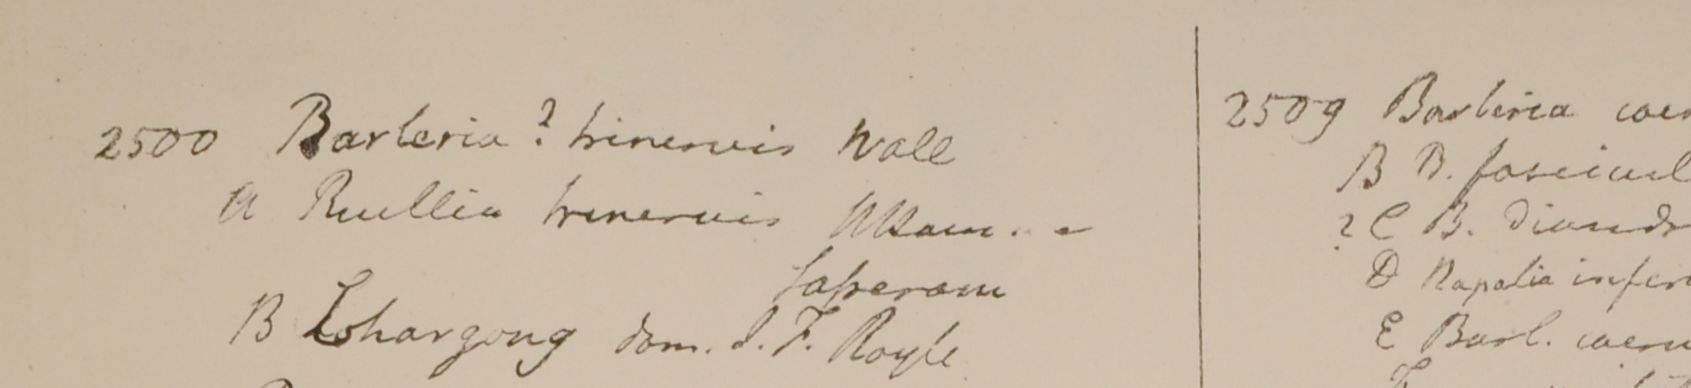 2500 Barleria? trinervis Wall
A Ruellia trinervis
B Lohargong dom. J. F. Royle
2509 Barleria
B B. fascicul
? C B. diandr
D Napalia
E Barl.